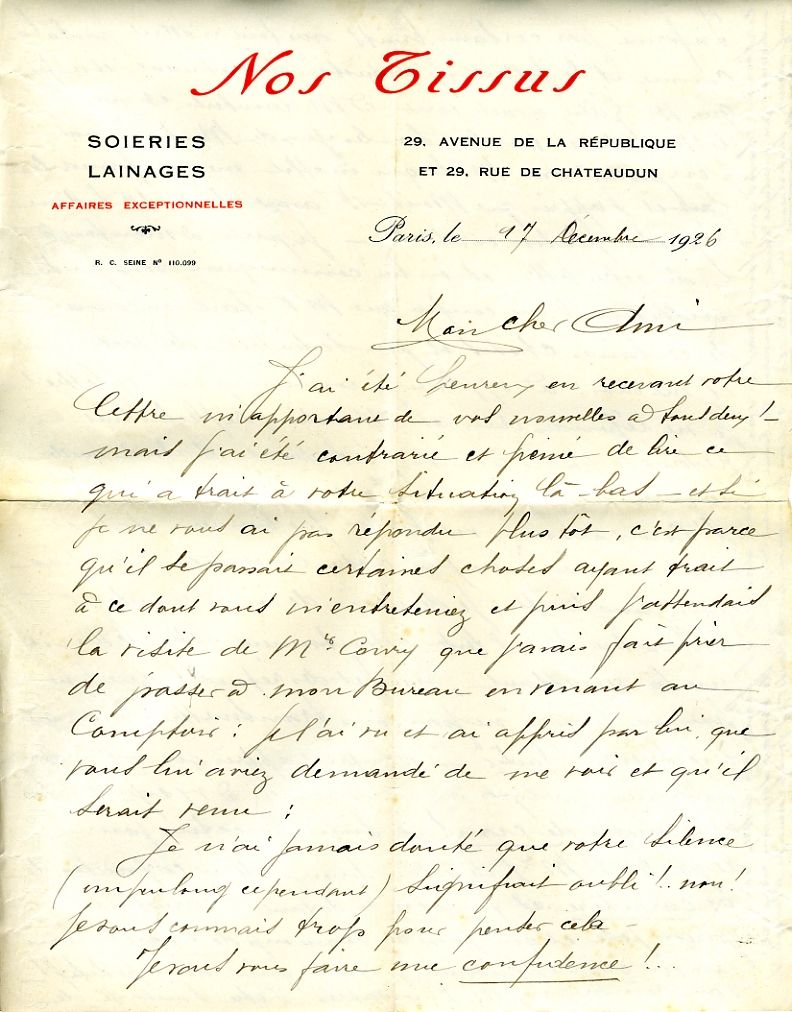 Nos Tissus
SOIERIES
LAINAGES
AFFAIRES EXCEPTIONNELLES
R. C. SEINE Nº 110.099
29, AVENUE DE LA RÉPUBLIQUE
ET 29, RUE DE CHATEAUDUN
Paris, le 17 Décembre 1926
Mon cher Ami
J'ai été heureux en recevant votre
lettre m'apportant de vos nouvelles à tous deux! –
mais j'ai été contrarié et peiné de lire ce
qui a trait à votre situation là-bas – et si
je ne vous ai pas répondu plus tôt, c'est parce
qu'il se passait certaines choses ayant trait
à ce dont vous m'entreteniez et puis j'attendais
la visite de Mr. que j'avais fait prier
de passer à mon Bureau en venant au
Comptoir : je l'ai vu et ai appris par lui, que
vous lui aviez demandé de me voir et qu'il
serait venu ;
Je n'ai jamais douté que votre silence
(un peu long cependant) signifiait oubli!.. non!
Je vous connais trop pour penser cela –
Je vous faire une confidence!...